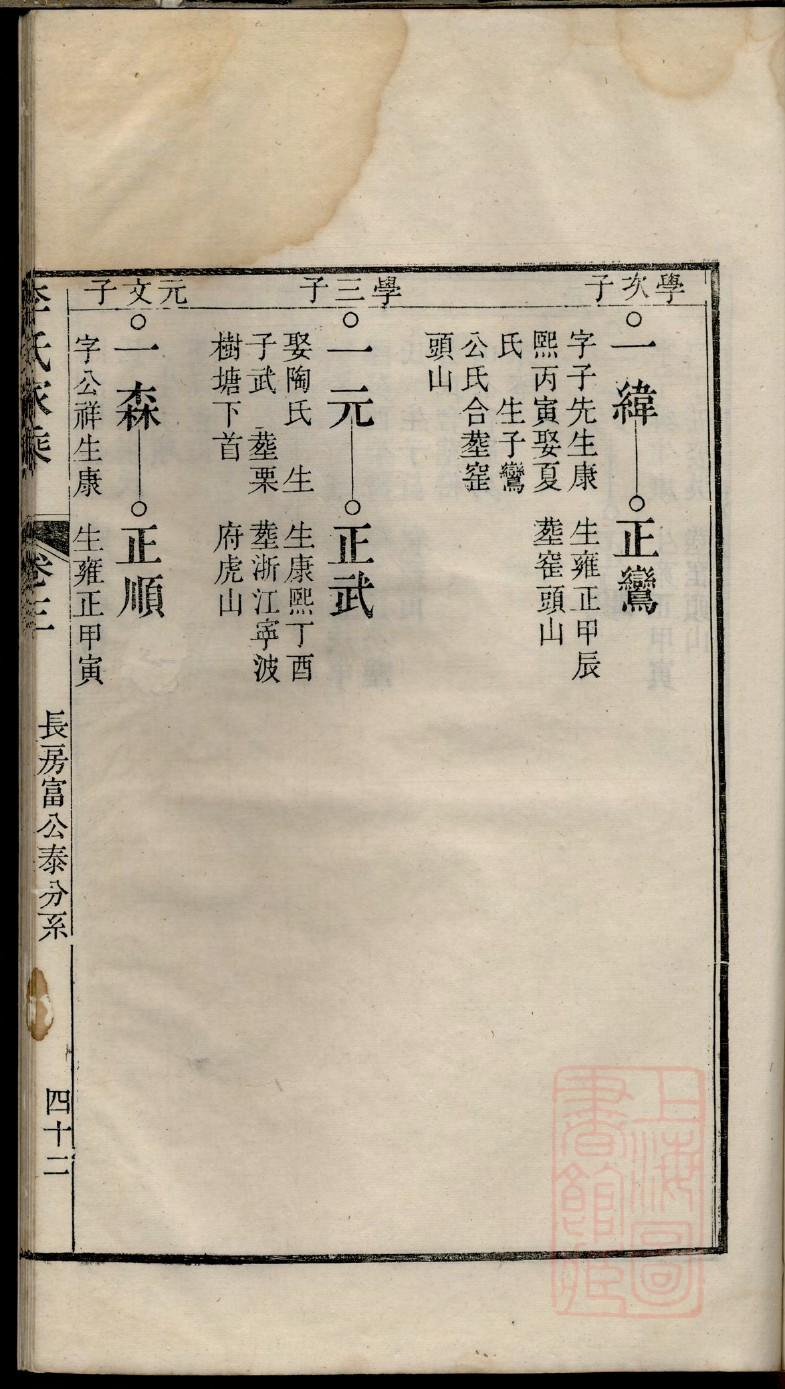 學次子
一緯
正鸞
字子先生康
熙丙寅娶夏
氏　生子鸞
公氏合塟窑
頭山
生雍正甲辰
塟窑頭山
學三子
一元
正武
娶陶氏　生
子武　塟栗
樹塘下首
生康熙丁酉
塟浙江寧波
府虎山
元文子
一森
正順
字公祥生康
生雍正甲寅
李氏家乘
卷三
長房富公泰分系
四十二
上海圖
書館藏